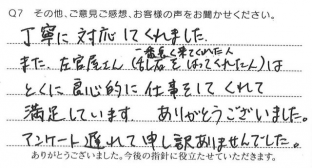 Q7 その他、ご意見ご感想、お客様の声をお聞かせください。
丁寧に対応してくれました。
一番長く来てくれた人
また、左官屋さん(乱石をはってくれた人)は
とくに良心的に仕事をしてくれて
満足しています。ありがとうございました。
アンケート遅れて申し訳ありませんでした。
ありがとうございました。今後の指針に役立たせていただきます。